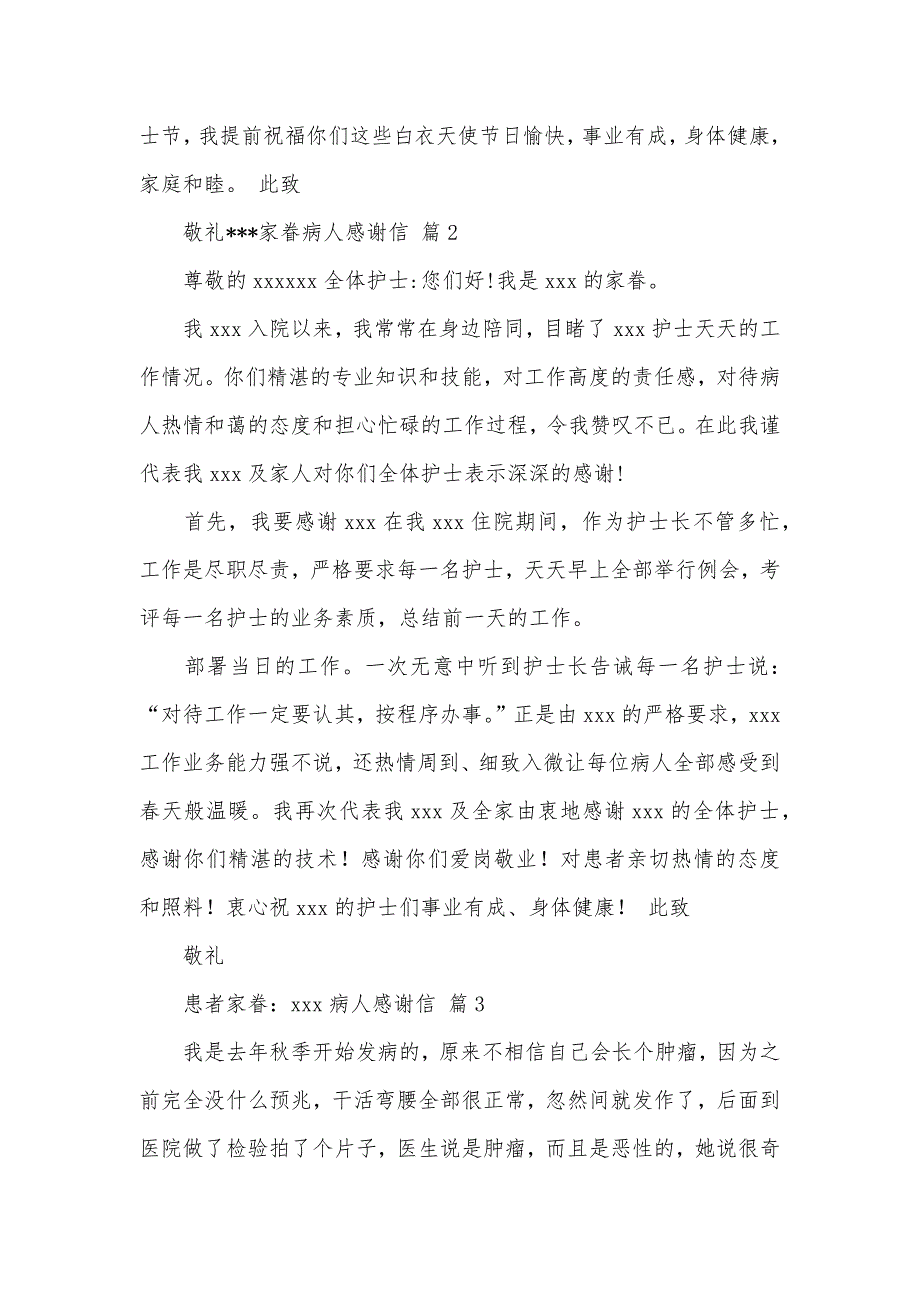 士节，我提前祝福你们这些白衣天使节日愉快，事业有成，身体健康，
家庭和睦。 此致
敬礼***家眷病人感谢信 篇2
尊敬的 xxxxxx 全体护士:您们好!我是 xxx 的家眷。
我 xxx 入院以来，我常常在身边陪同，目睹了 xxx 护士天天的工
作情况。你们精湛的专业知识和技能，对工作高度的责任感，对待病
人热情和蔼的态度和担心忙碌的工作过程，令我赞叹不已。在此我谨
代表我 xxx 及家人对你们全体护士表示深深的感谢!
首先，我要感谢 xxx 在我 xxx 住院期间，作为护士长不管多忙，
工作是尽职尽责，严格要求每一名护士，天天早上全部举行例会，考
评每一名护士的业务素质，总结前一天的工作。
部署当日的工作。一次无意中听到护士长告诫每一名护士说：
“对待工作一定要认其，按程序办事。”正是由 xxx 的严格要求，xxx
工作业务能力强不说，还热情周到、细致入微让每位病人全部感受到
春天般温暖。我再次代表我 xxx 及全家由衷地感谢 xxx 的全体护士，
感谢你们精湛的技术！感谢你们爱岗敬业！对患者亲切热情的态度
和照料！衷心祝 xxx 的护士们事业有成、身体健康！ 此致
敬礼
患者家眷：xxx 病人感谢信 篇3
我是去年秋季开始发病的，原来不相信自己会长个肿瘤，因为之
前完全没什么预兆，干活弯腰全部很正常，忽然间就发作了，后面到
医院做了检验拍了个片子，医生说是肿瘤，而且是恶性的，她说很奇